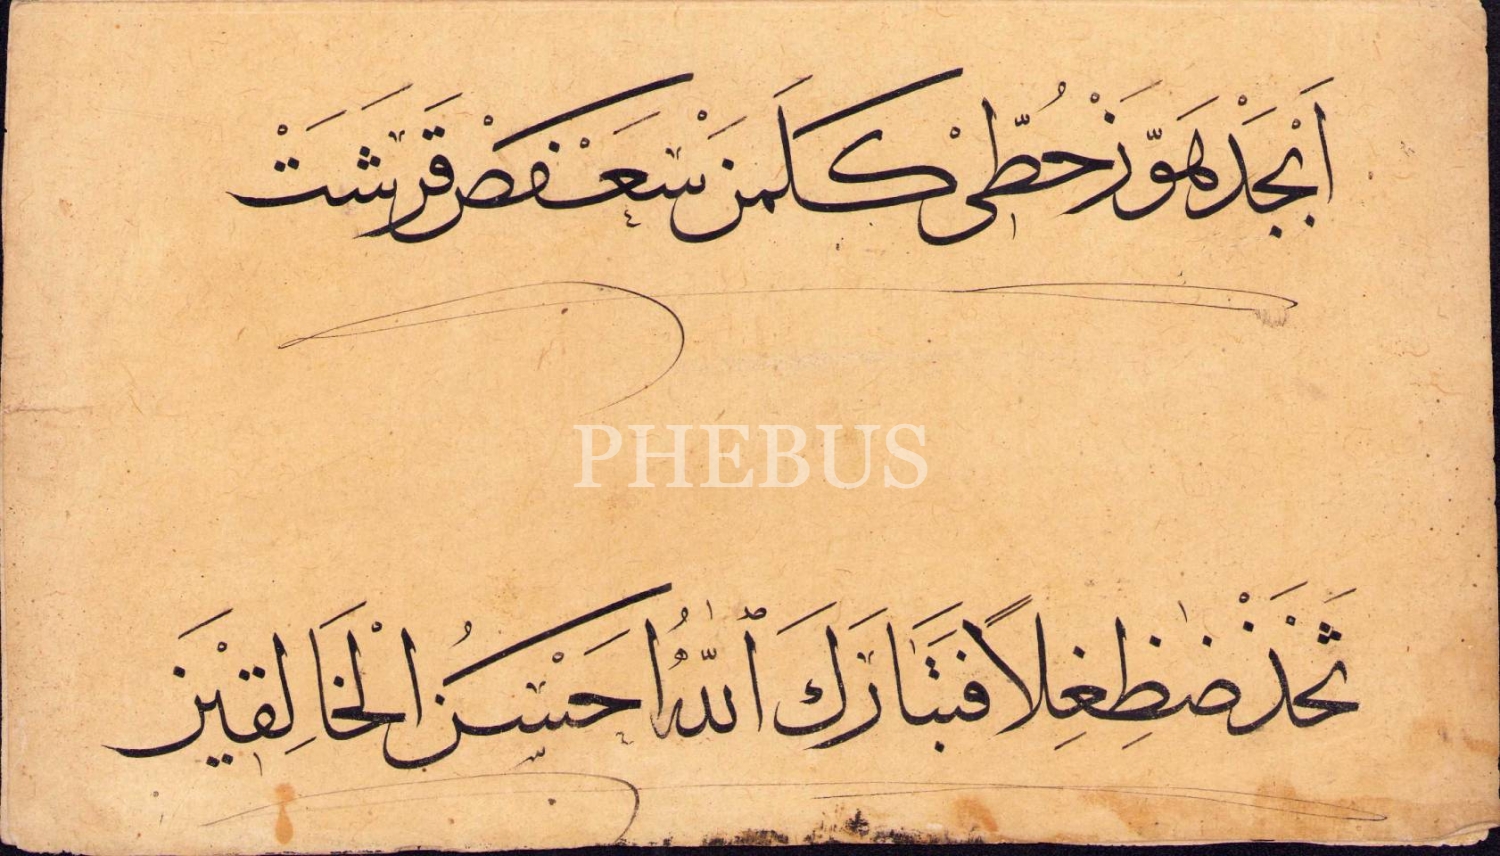 اَبْجَدْ هَوَّزْ حُطِّىْ كَلَمَنْ سَعَفَصْ قَرَشَتْ
PHEBUS
ثَخَذْ ضَظِغِلاً فَتَبَارَكَ اللّٰهُ اَحْسَنُ الْخَالِقِيْنَ